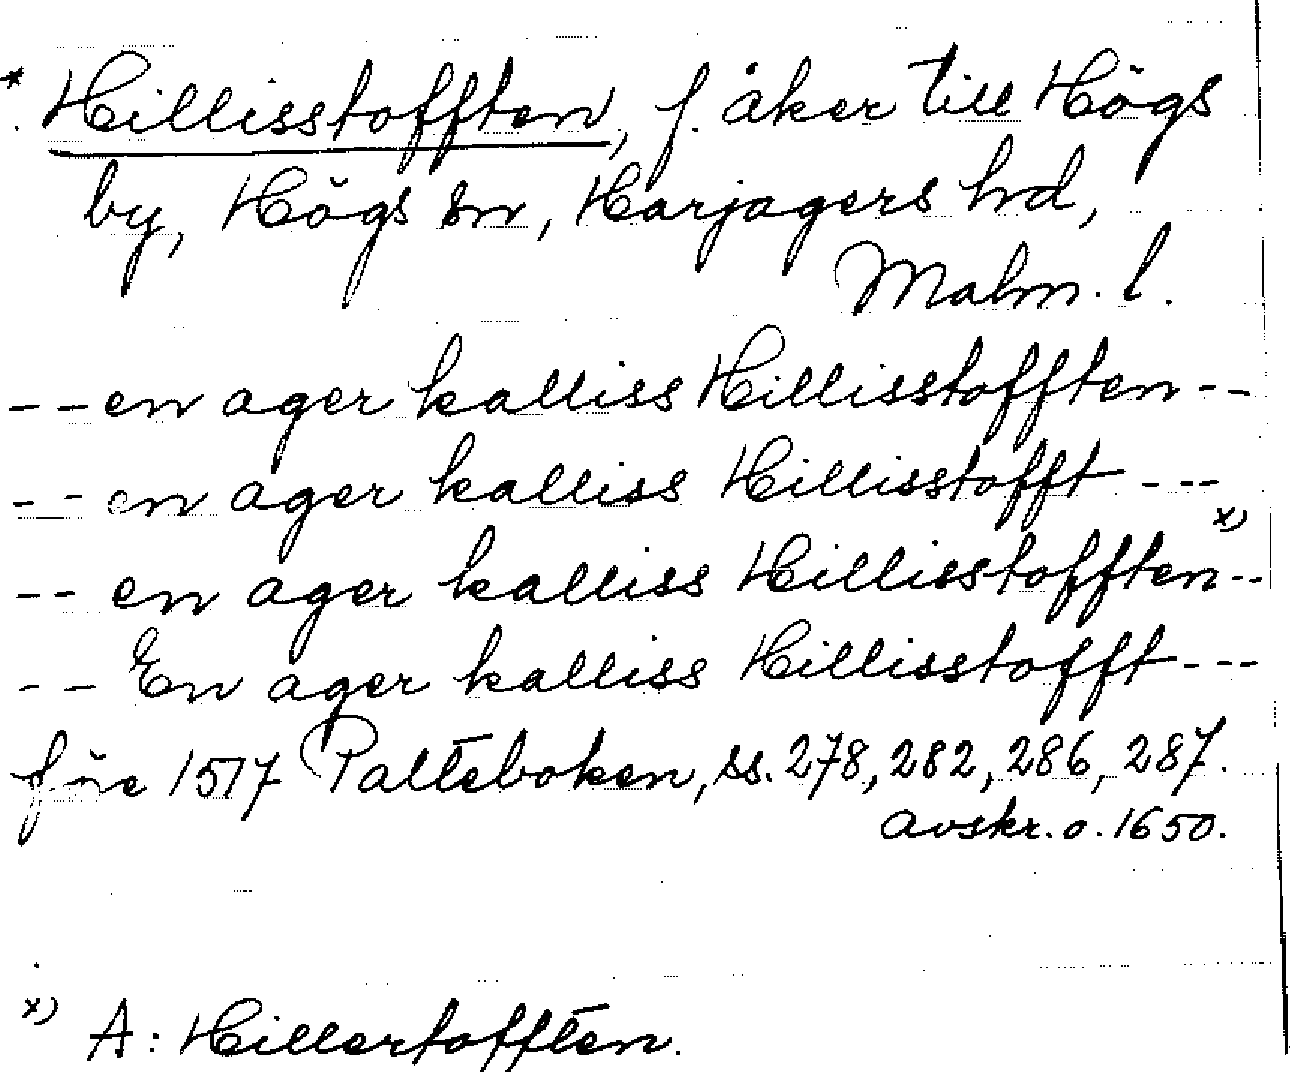 * Hillisstofften, f. åker till Högs
by, Högs sn, Harjagers hd,
Malm. l.
-- en ager kalliss Hillisstofften --
-- en ager kalliss Hillisstofft ---
-- en ager kalliss Hillisstofften x) --
-- En ager kalliss Hillisstofft ---
före 1517 Palteboken, ss. 278, 282, 286, 287.
avskr. o. 1650.
x) A: Hillertofften.